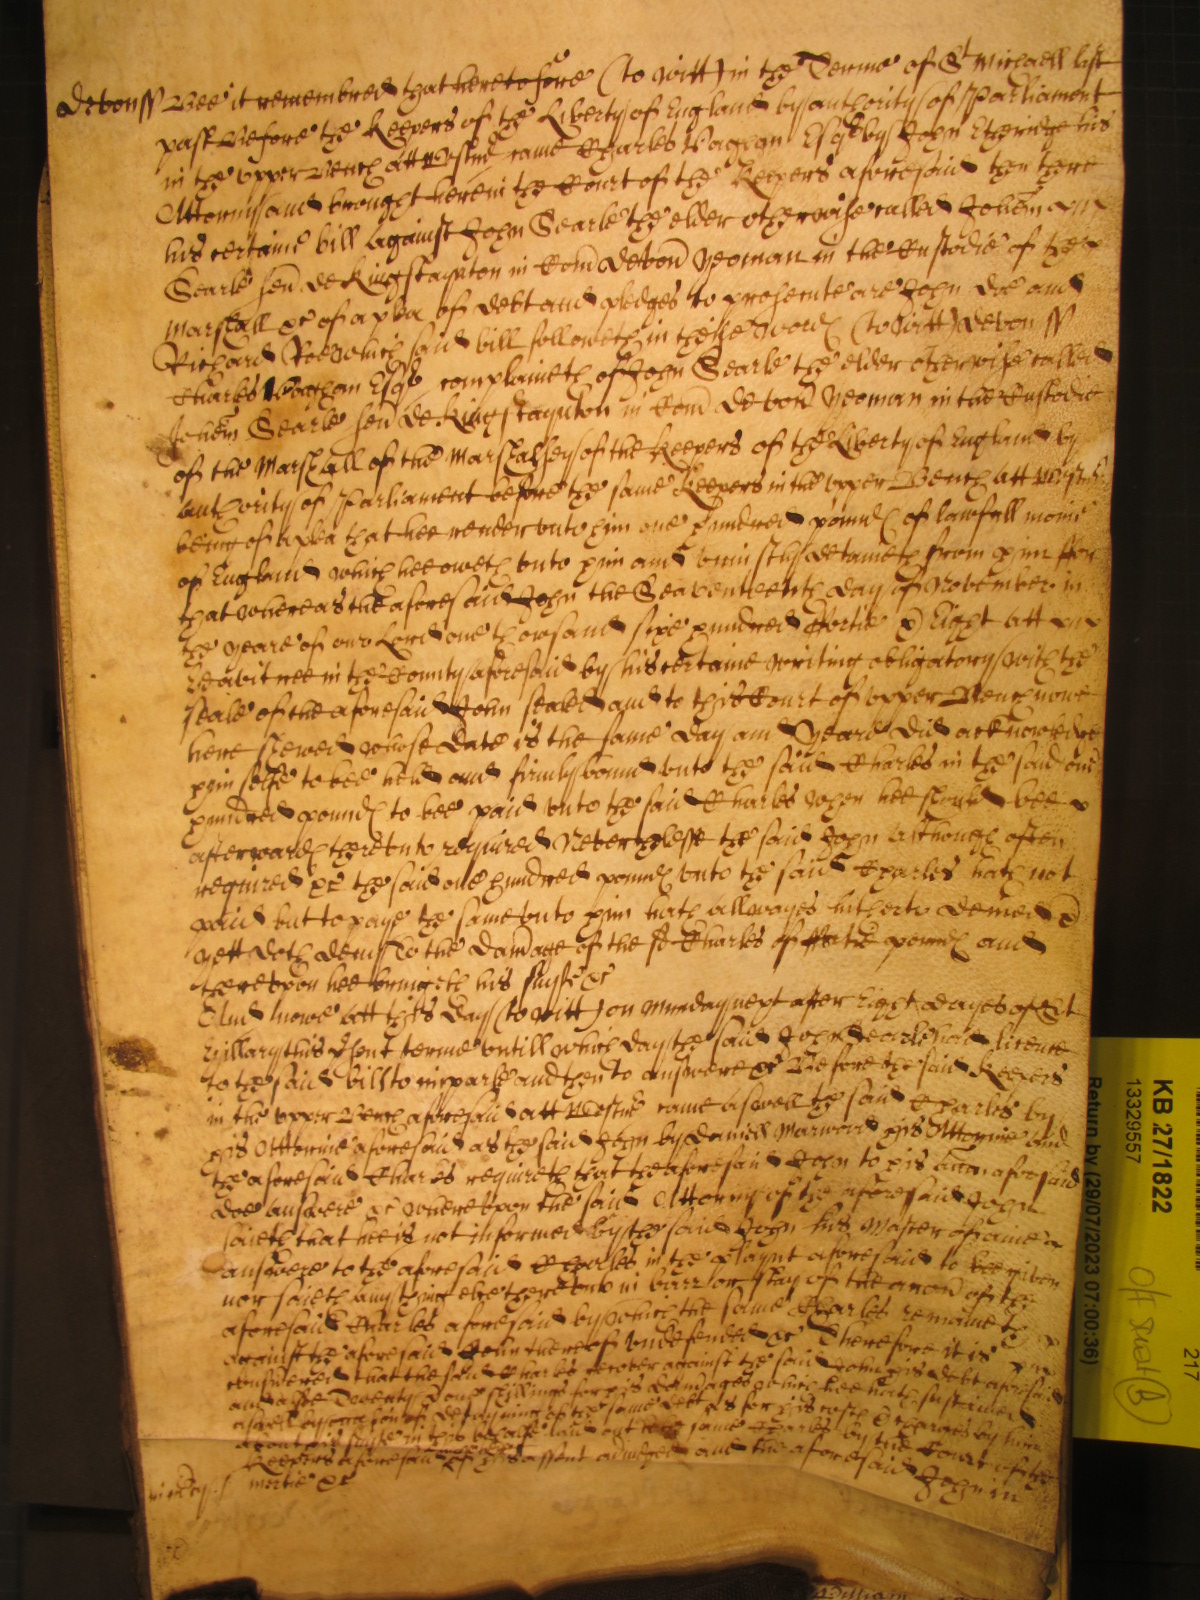 Devon ss Bee it remembred that heretofore (to witt) in the Terme of St Michaell last
past Before the Keepers of the Liberty of England by authority of Parliament
in the Upper Bench att Westmr came Charles Vaghan Esqr by John Etheridge his
Attorny and brought here in the Court of the Keepers aforesaid then there
his certaine bill against John Searle the elder otherwise called Johem
Searle sen de Kingstaynton in Com Devon Yeoman in the Custodie of the
Marshall &c of a plea of debt and pledges to prosecute are John Doe and
Richard Roe which said bill followeth in these words (to Witt) Devon ss
Charles Vaghan Esqr complaineth of John Searle the elder otherwise called
Johem Searle sen de Kingstaynton in Com Devon Yeoman in the Custodie
of the Marshall of the Marshalsey of the Keepers of the Liberty of England by
authority of Parliament before the same Keepers in the Upper Bench att Westmr
being of a plea that hee render unto him one hundred pounds of lawfull monie
of England which hee oweth unto him and uniustly detaineth from him For
that whereas the aforesaid John the Seaventeenth day of November in
the yeare of our Lord one thowsand sixe hundred Fortie & Eight att
in the County aforesaid by his certaine writing obligatory with the
seale of the aforesaid John sealed and to this Court of Upper Bench nowe
here shewed whose date is the same day and Yeare did acknowledge
him selfe to bee held and firmly bound unto the said Charles in the said one
hundred pounds to bee paid unto the said Charles when hee should bee
afterwards thereunto required Neverthelesse the said John although often
required &c the said one hundred pounds unto the said Charles hath not
paid but to paye the same unto him hath allwayes hitherto denied &
yett doth deny To the damage of the sd Charles of Fortie pounds and
thereupon hee bringeth his suyte &c
And nowe att this day (to witt) on Munday next after Eight dayes of St
Hillary this psent terme untill which day the said John Searle had licence
to the said bill to imparle and then to answere &c Before the said Keepers
in the Upper Bench aforesaid att Westmr came aswell the said Charles by
his Attornie aforesaid as the said John by Daniell Marwood his Attornie And
the aforesaid Charles requireth that the aforesaid John to his bill aforesaid
doe answere &c whereupon the said Attorny of the aforesaid John
saieth that hee is not informed by the said John his Master of ame
answere to the aforesaid Charles in the playnt aforesaid to bee given
nor saieth any thing else thereunto in barr or stay of the accon of the
aforesaid Charles aforesaid by which the same Charles remaineth
against the aforesaid John thereof undefended &c Therefore it is
considered that the said Charles recover against the said John his debt aforesaid
and alsoe Twenty & one shillings for his damages which hee hath susteined
aswell by occasion of detayning of the same debt as for his costs & charges by him
about his suyte in this behalfe laid out to the same Charles by the Court of the
Keepers aforesaid of his assent adiudged and the aforesaid John in
mercie &c
KB 27/1822
13329557
Return by (29/07/2023 07:00:36)
217